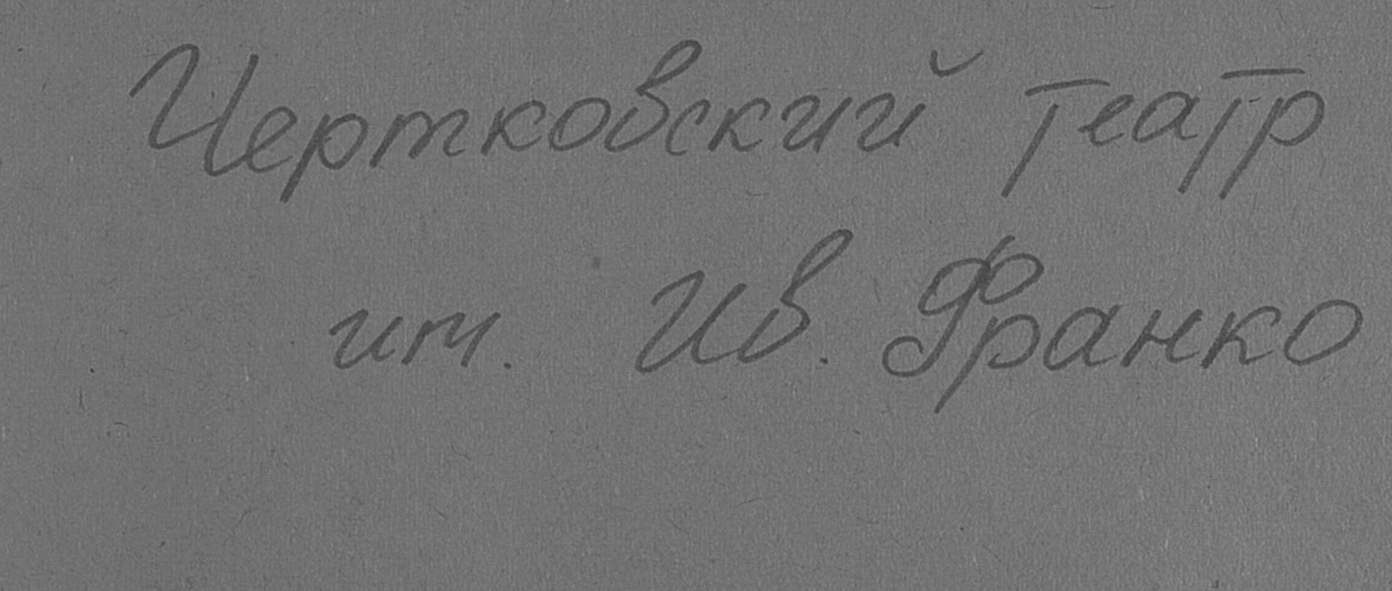 Чертковский театр
им. Ив. Франко